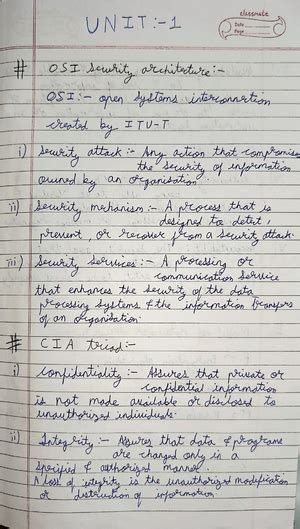 classmate
Date
Page
UNIT:-1
# OSI Security architecture:-
OSI:- open Systems interconnection
created by ITU-T
i) Security attack:- Any action that compromises
the security of information
owned by an organisation.
ii) Security mechanism:- A process that is
designed to detect,
prevent, or recover from a security attack.
iii) Security Services:- A processing or
communication service
that enhances the security of the data
processing systems & the information transfers
of an organisation.
# CIA triad:-
i) Confidentiality:- Assures that private or
confidential information
is not made available or disclosed to
unauthorized individuals.
ii) Integrity:- Assures that data & programs
are changed only in a
specified & authorized manner.
A loss of integrity is the unauthorized modification
or destruction of information.